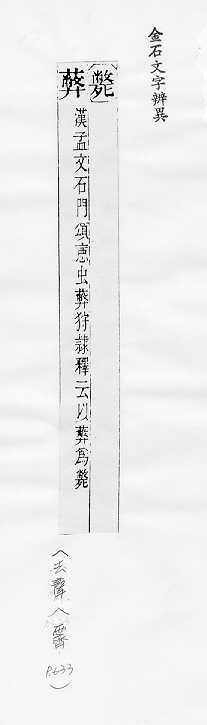 金石文字辨異
〔斃〕
漢孟文石門頌惡虫狩隸釋云以為斃
(去聲八霽 P.633)